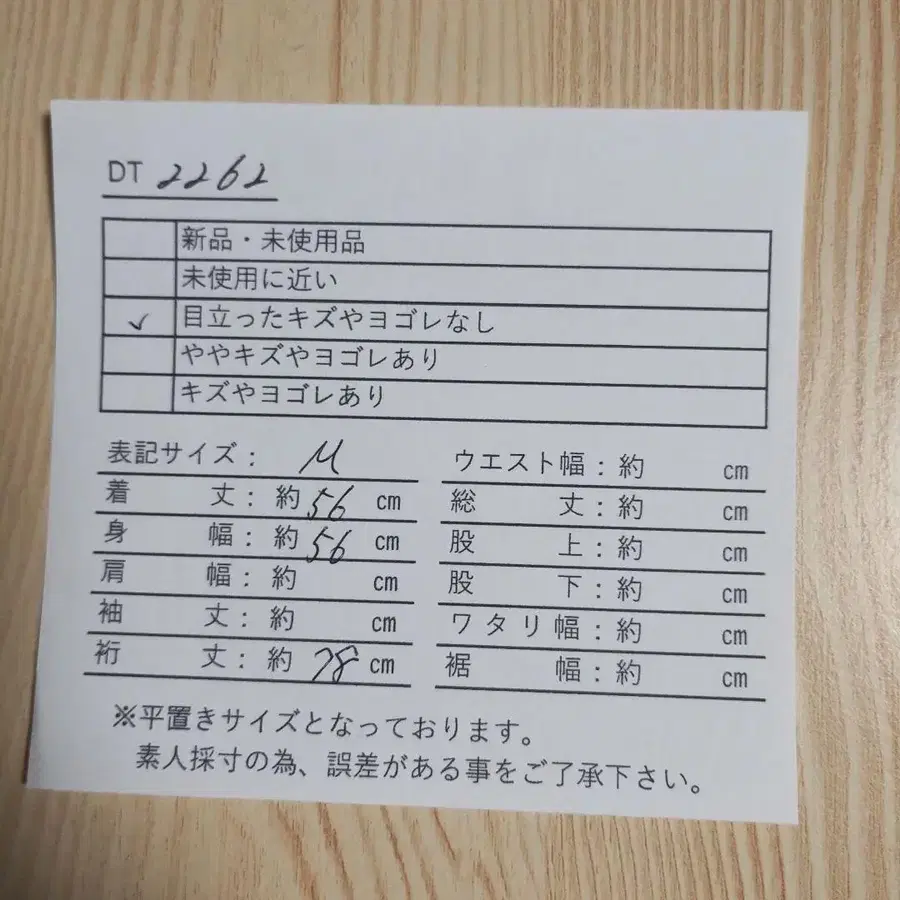 DT 2262
新品・未使用品
未使用に近い
✓ 目立ったキズやヨゴレなし
ややキズやヨゴレあり
キズやヨゴレあり
表記サイズ: M
着丈:約56cm
身幅:約56cm
肩幅:約 cm
袖丈:約 cm
裄丈:約78cm
ウエスト幅:約 cm
総丈:約 cm
股上:約 cm
股下:約 cm
ワタリ幅:約 cm
裾幅:約 cm
※平置きサイズとなっております。
素人採寸の為、誤差がある事をご了承下さい。